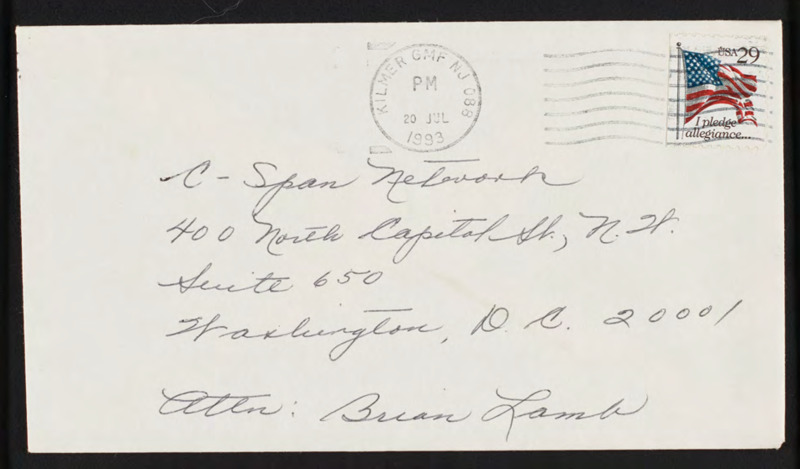 KILMER GMF NJ 088
PM
20 JUL
1993
USA 29
I pledge
allegiance...
C-Span Network
400 North Capitol St., N.W.
Suite 650
Washington, D.C. 20001
Attn: Brian Lamb